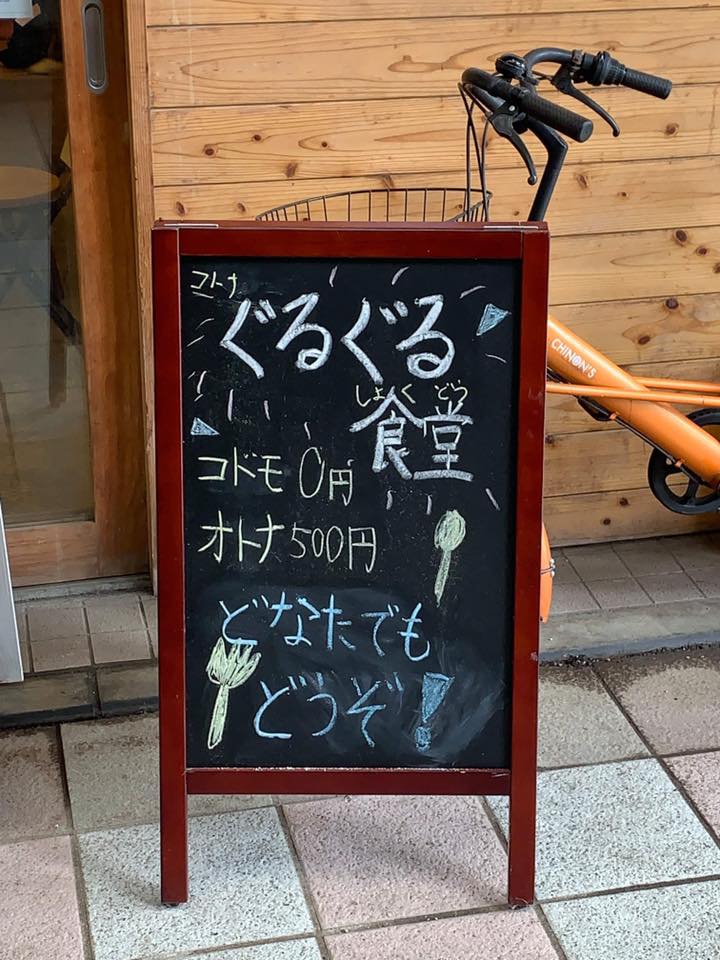 コトナ
ぐるぐる
しょくどう
食堂
コドモ 0円
オトナ 500円
どなたでも
どうぞ!
CHINON'S